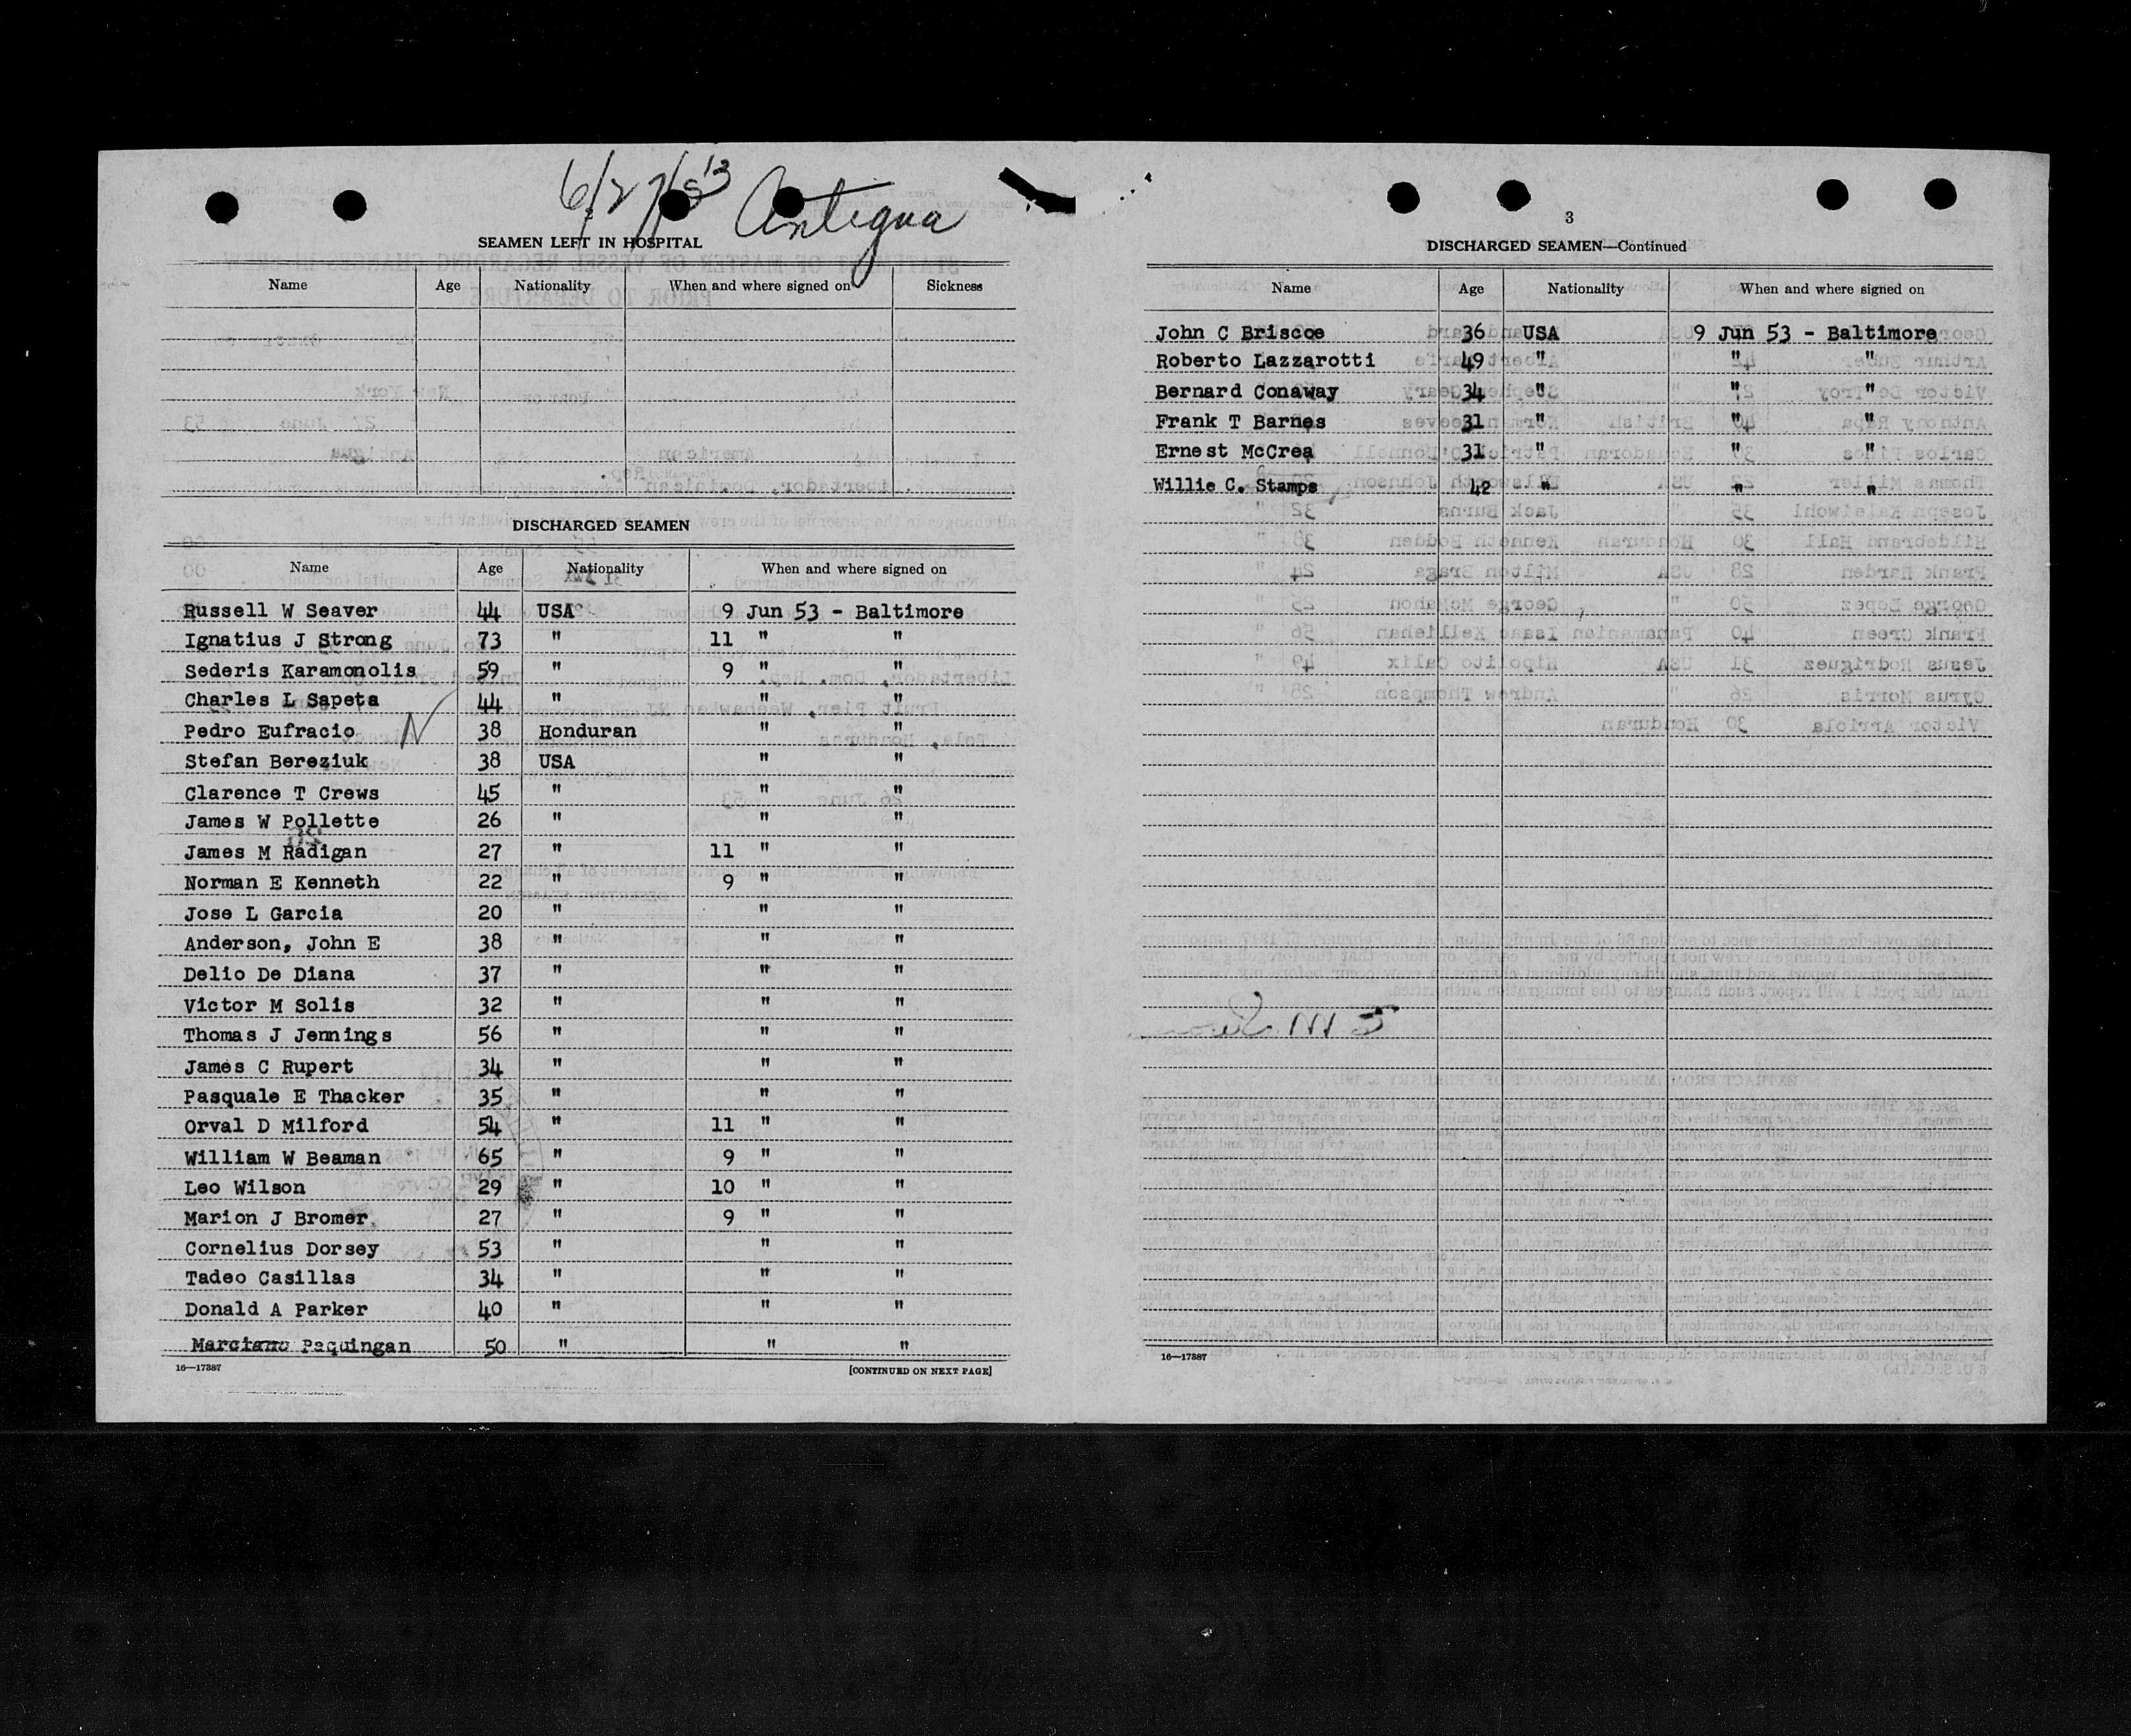 6/27/53 Antigua
SEAMEN LEFT IN HOSPITAL
Name Age Nationality When and where signed on Sickness
DISCHARGED SEAMEN
Name Age Nationality When and where signed on
Russell W Seaver 44 USA 9 Jun 53 - Baltimore
Ignatius J Strong 73 " 11 " "
Sederis Karamonolis 59 " 9 " "
Charles L Sapeta 44 " " "
Pedro Eufracio N 38 Honduran " "
Stefan Bereziuk 38 USA " "
Clarence T Crews 45 " " "
James W Pollette 26 " " "
James M Radigan 27 " 11 " "
Norman E Kenneth 22 " 9 " "
Jose L Garcia 20 " " "
Anderson, John E 38 " " "
Delio De Diana 37 " " "
Victor M Solis 32 " " "
Thomas J Jennings 56 " " "
James C Rupert 34 " " "
Pasquale E Thacker 35 " " "
Orval D Milford 54 " 11 " "
William W Beaman 65 " 9 " "
Leo Wilson 29 " 10 " "
Marion J Bromer 27 " 9 " "
Cornelius Dorsey 53 " " "
Tadeo Casillas 34 " " "
Donald A Parker 40 " " "
Marciano Paquingan 50 " " "
16—17387 [CONTINUED ON NEXT PAGE]
3
DISCHARGED SEAMEN—Continued
Name Age Nationality When and where signed on
John C Briscoe 36 USA 9 Jun 53 - Baltimore
Roberto Lazzarotti 49 " " "
Bernard Conaway 34 " " "
Frank T Barnes 31 " " "
Ernest McCrea 31 " " "
Willie C. Stamps 42 " " "
16—17387